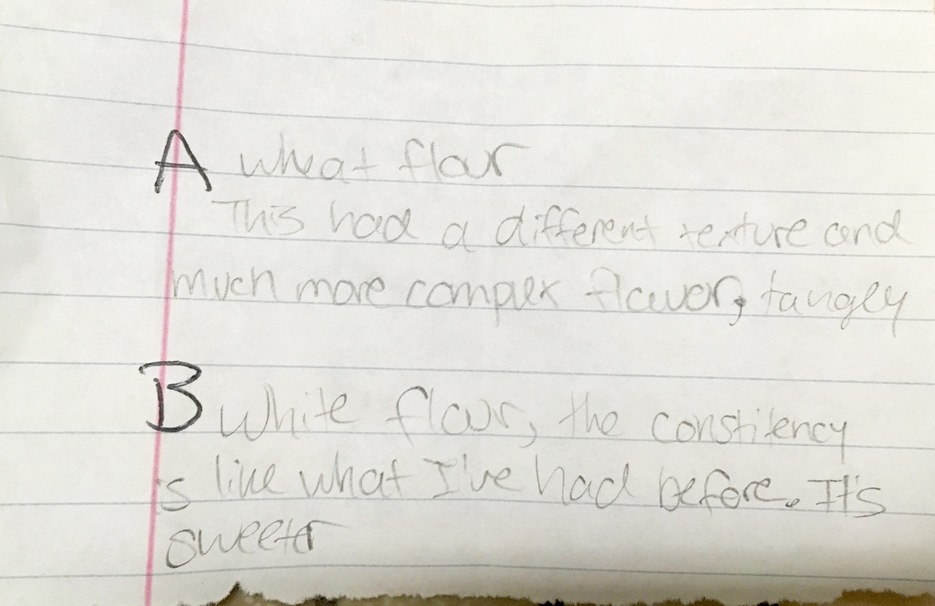 A wheat flour
This had a different texture and
much more complex flavor, tangey
B White flour, the constitency
is like what I've had before. It's
sweeter